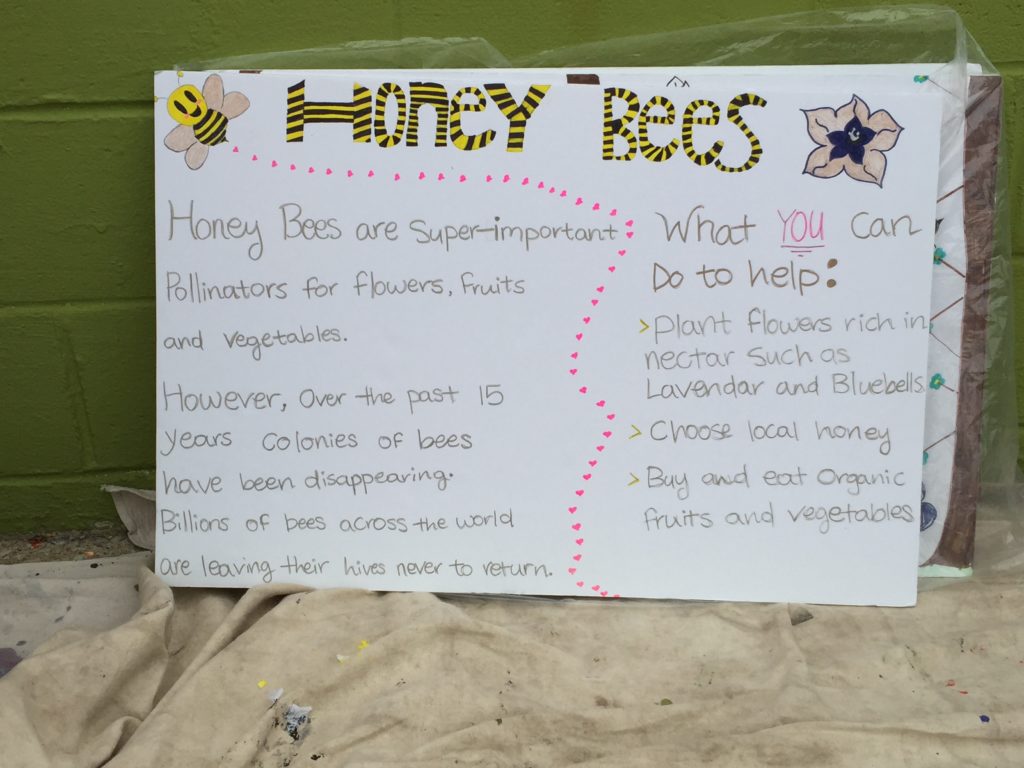 Honey Bees
Honey Bees are Super-important
Pollinators for flowers, Fruits
and vegetables.
However, Over the past 15
years colonies of bees
have been disappearing.
Billions of bees across the world
are leaving their hives never to return.
What YOU can
Do to help:
>Plant flowers rich in
nectar such as
Lavendar and Bluebells
> Choose local honey
> Buy and eat Organic
fruits and vegetables